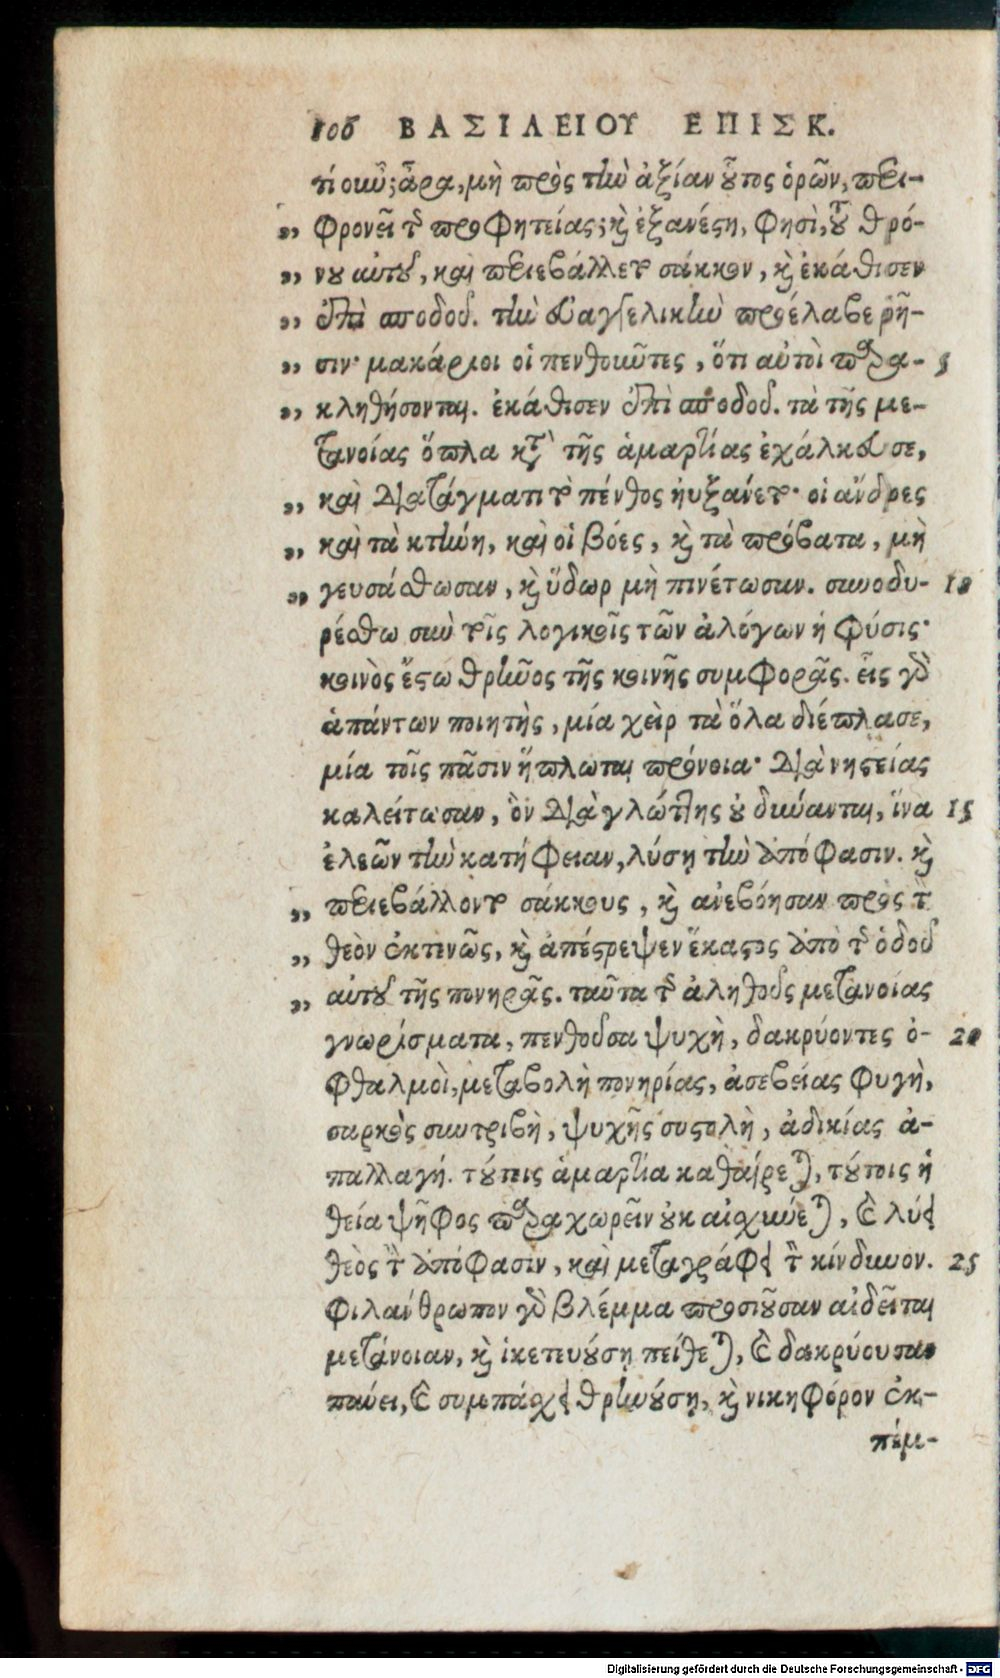 106 ΒΑΣΙΛΕΙΟΥ ΕΠΙΣΚ.
τί οιῶ; ἆρα, μὴ πρὸς τὴν ἀξίαν οὗτος ὁρῶν, περι-
„ φρονεῖ τῆς προφητείας; καὶ ἐξανέστη, φησὶ, τοῦ θρό-
„ νου αὐτοῦ, καὶ περιεβάλλετο σάκκον, καὶ ἐκάθισεν
„ ἐπὶ σποδοῦ. τὴν εὐαγγελικὴν προέλαβε ῥῆ-
„ σιν· μακάριοι οἱ πενθοῦντες, ὅτι αὐτοὶ παρα- 5
„ κληθήσονται. ἐκάθισεν ἐπὶ σποδοῦ. τὰ τῆς με-
τανοίας ὅπλα κατὰ τῆς ἁμαρτίας ἐχάλκευσε,
„ καὶ διατάγματι τὸ πένθος ηὐξάνετο· οἱ ἄνδρες
„ καὶ τὰ κτήνη, καὶ οἱ βόες, καὶ τὰ πρόβατα, μὴ
„ γευσάσθωσαν, καὶ ὕδωρ μὴ πινέτωσαν. συνοδυ- 10
ρέσθω σὺν τοῖς λογικοῖς τῶν ἀλόγων ἡ φύσις·
κοινὸς ἔστω θρῆνος τῆς κοινῆς συμφορᾶς. εἷς γὰρ
ἁπάντων ποιητὴς, μία χεὶρ τὰ ὅλα διέπλασε,
μία τοῖς πᾶσιν ἥπλωται πρόνοια· διὰ νηστείας
καλείτωσαν, ὃν διὰ γλώττης οὐ δύνανται, ἵνα 15
ἐλεῶν τὴν κατήφειαν, λύσῃ τὴν ἀπόφασιν. καὶ
„ περιεβάλλοντο σάκκους, καὶ ἀνεβόησαν πρὸς τὸν
„ θεὸν ἐκτενῶς, καὶ ἀπέστρεψεν ἕκαστος ἀπὸ τῆς ὁδοῦ
„ αὐτοῦ τῆς πονηρᾶς. ταῦτα τῆς ἀληθοῦς μετανοίας
γνωρίσματα, πενθοῦσα ψυχὴ, δακρύοντες ὀ- 20
φθαλμοὶ, μεταβολὴ πονηρίας, ἀσεβείας φυγὴ,
σαρκὸς συντριβὴ, ψυχῆς συστολὴ, ἀδικίας ἀ-
παλλαγή. τούτοις ἁμαρτία καθαίρεται, τούτοις ἡ
θεία ψῆφος παραχωρεῖν οὐκ αἰσχύνεται, καὶ λύει
θεὸς τὴν ἀπόφασιν, καὶ μεταγράφει τὸν κίνδυνον. 25
φιλάνθρωπον γὰρ βλέμμα προσιοῦσαν αἰδεῖται
μετάνοιαν, καὶ ἱκετευούσῃ πείθεται, καὶ δακρύουσαν
παύει, καὶ συμπάσχει θρηνούσῃ, καὶ νικηφόρον ἐκ-
πέμ-
Digitalisierung gefördert durch die Deutsche Forschungsgemeinschaft - DFG